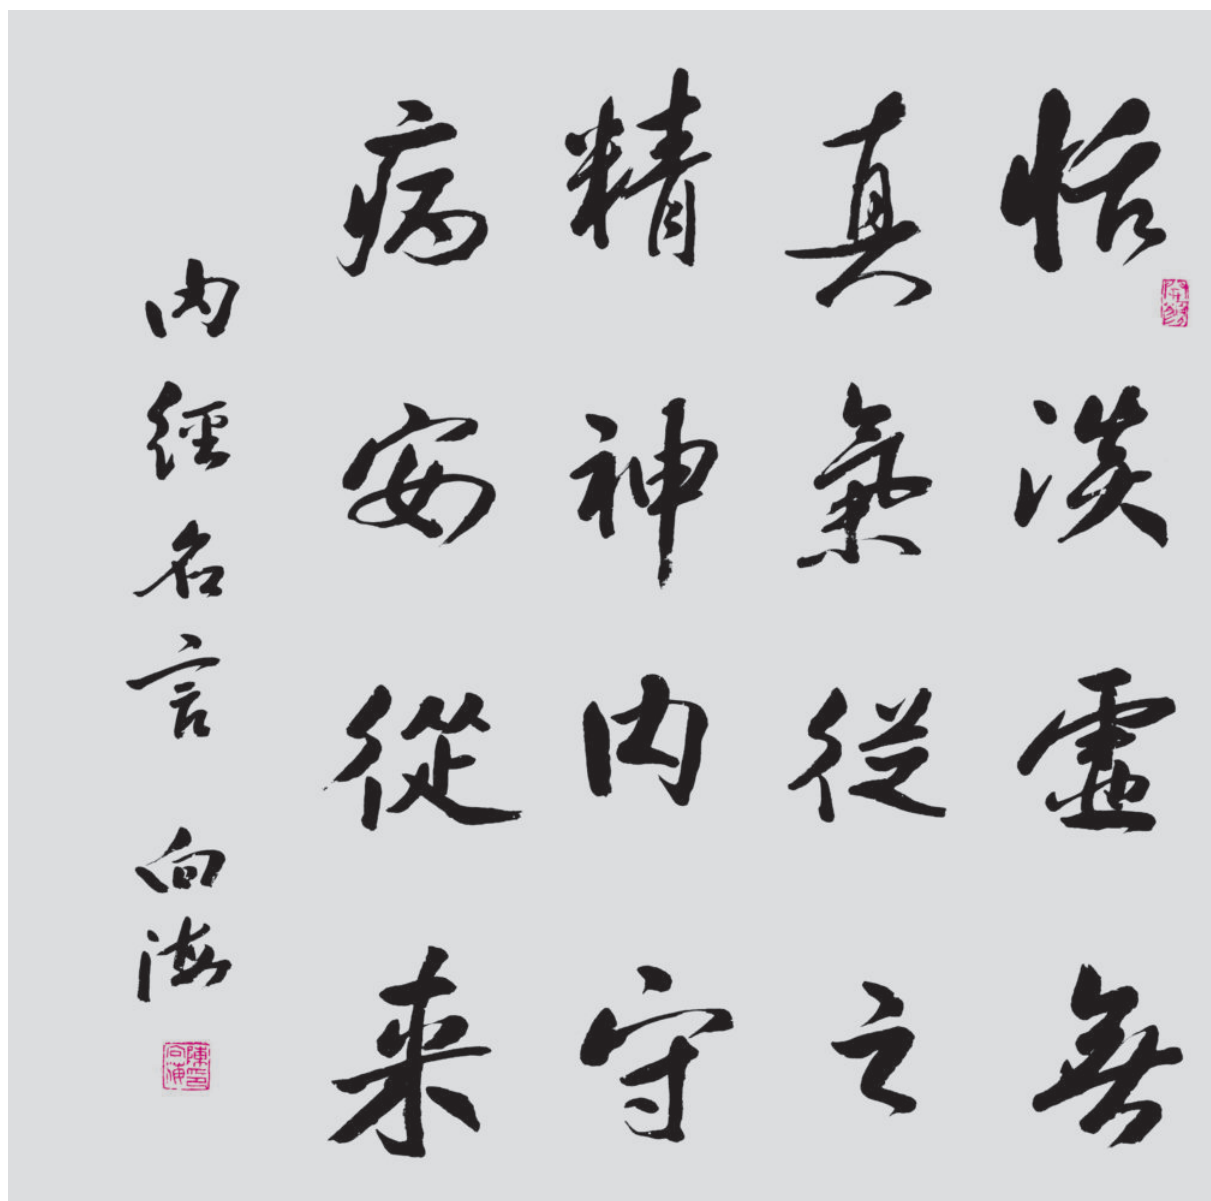 恬淡虛無
真氣從之
精神內守
病安從來
內經名言 向海
陳向海印